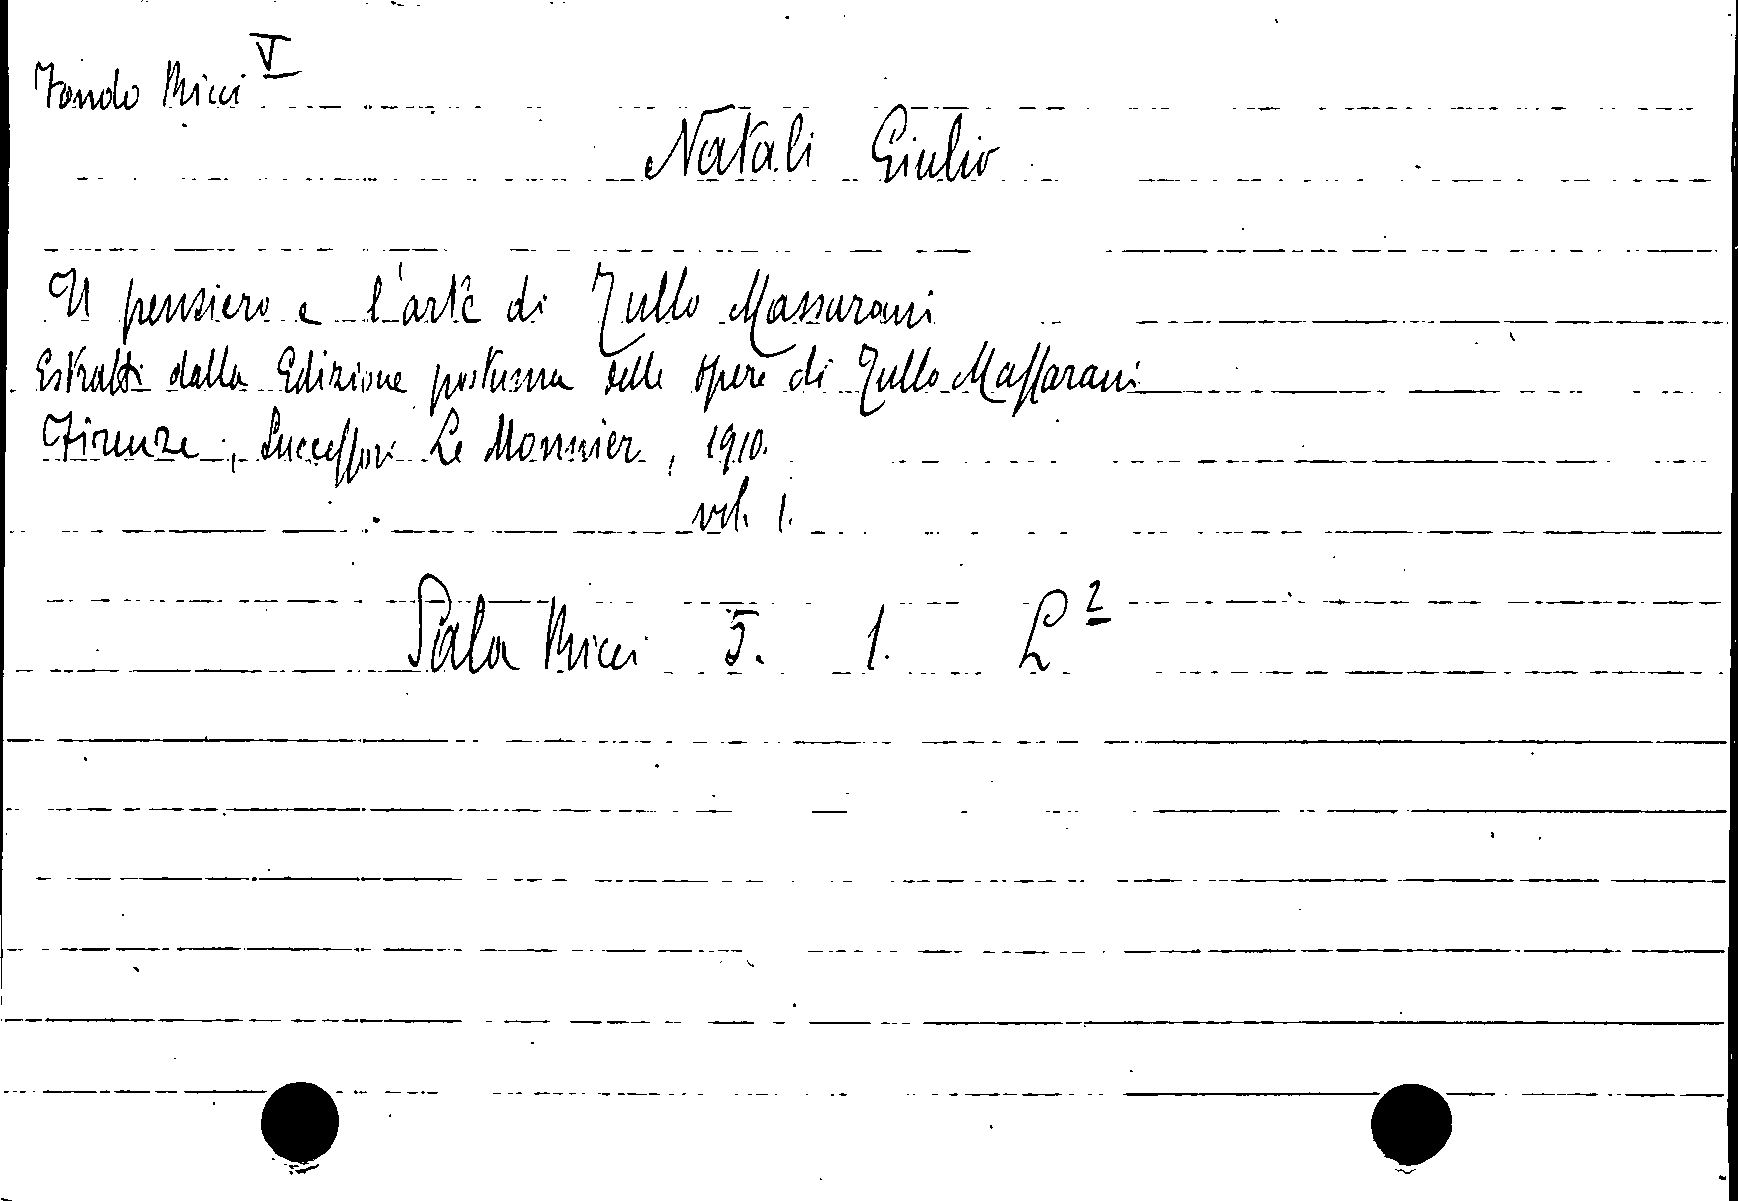 Fondo Ricci V
Natali Giulio
Il pensiero e l'arte di Tullo Massarani
Estratti dalla Edizione postuma delle opere di Tullo Massarani
Firenze, Successori Le Monnier, 1910.
vol. 1.
Sala Ricci 5. 1. L²